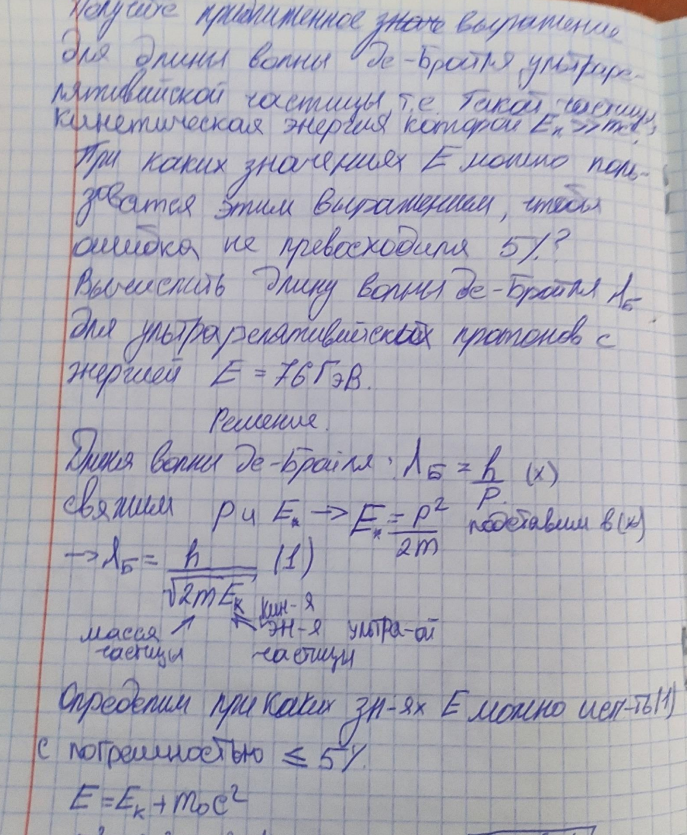 Получите приближенное выражение
для длины волны де-Бройля ультраре-
лятивийской частицы, т.е. такой частицы,
кинетическая энергия которой Eк >> mc²
При каких значениях E можно поль-
зоватся этим выражением, чтобы
ошибка не превосходила 5%?
Вычислить длину волны де-Бройля λБ
для ультрарелятивийских протонов с
энергией E = 76 ГэВ.
Решение.
Длина волны де-Бройля: λБ = h/P (x)
свяжим p и Eк → Eк = p²/2m подставим в (x)
→ λБ = h/√2mEк (1)
масса частицы
кин-я эн-я ультра-ой частицы
Определим при каких зн-ях E можно исп-ть (1)
с погрешностью ≤ 5%.
E = Eк + m₀c²